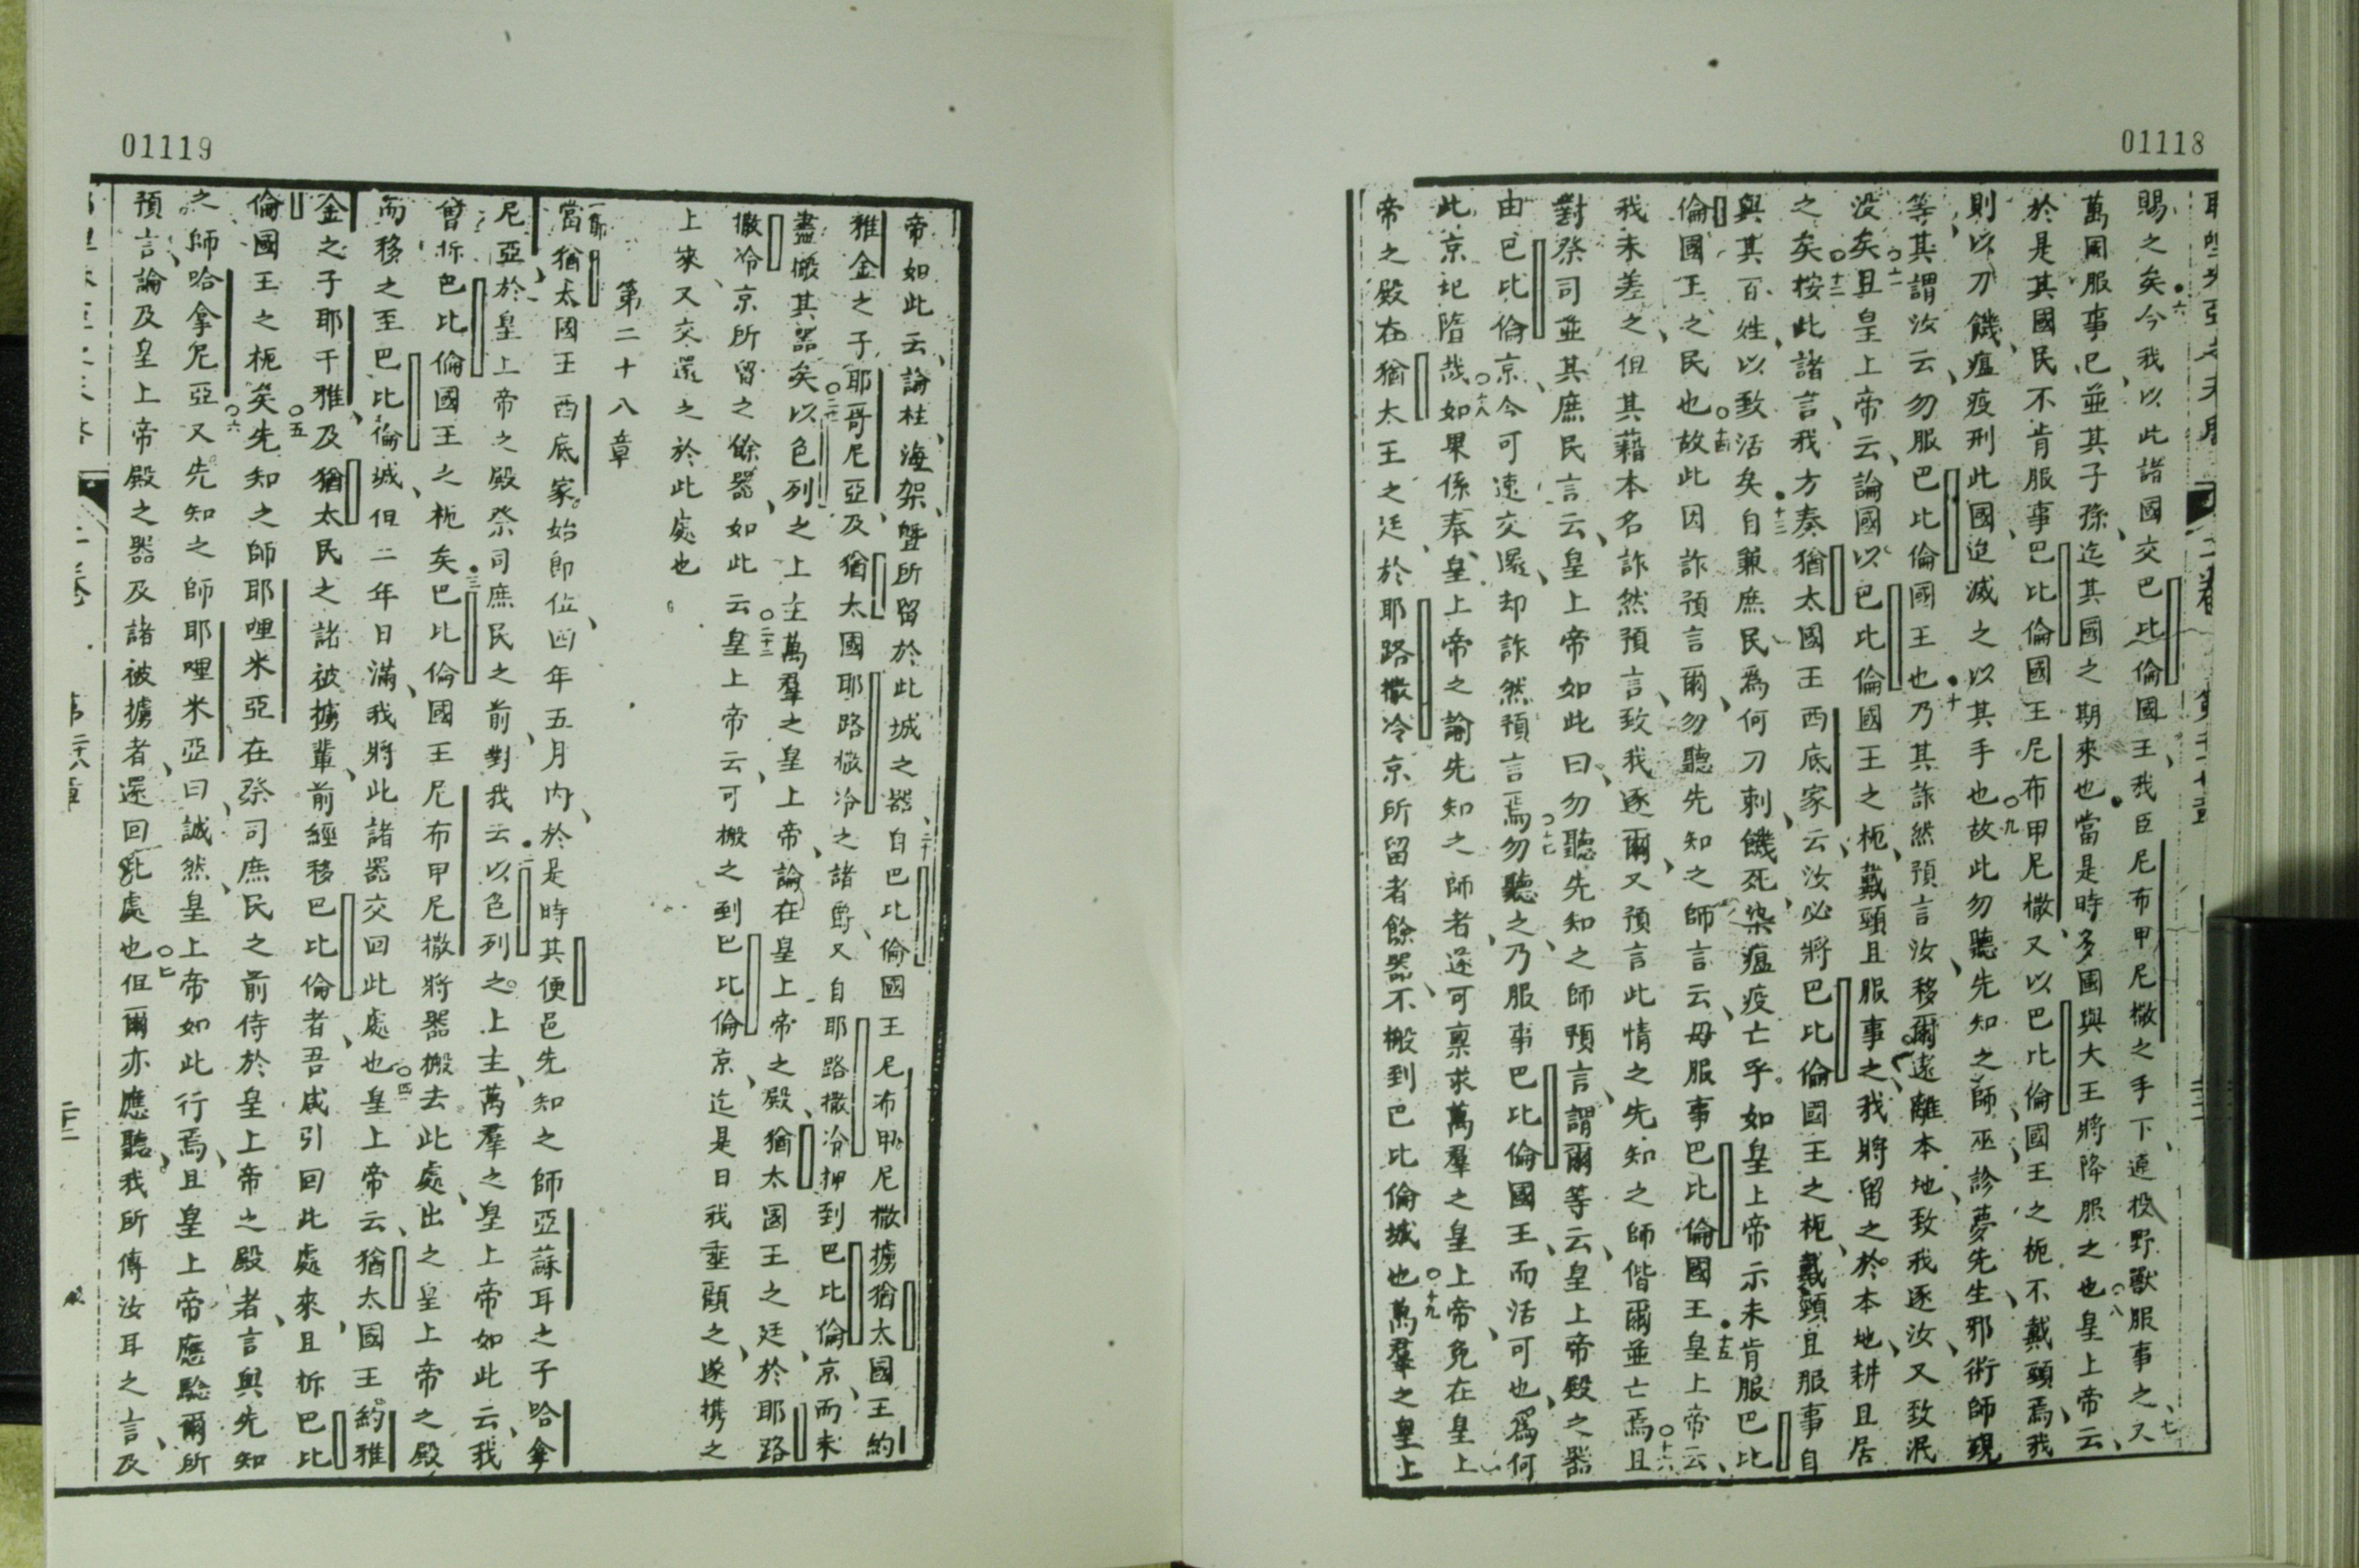 01118
賜之矣今我以此諸國交巴比倫國王我臣尼布甲尼撒之手下連投野獸服事之又
六
七
萬國服事已並其子孫迄其國之期來也當是時多國與大王將降服之也皇上帝云
八
於是其國民不肯服事巴比倫國王尼布甲尼撒又以巴比倫國王之枙不戴頸焉我
則以刀饑瘟疫刑此國迨滅之以其手也故此勿聽先知之師巫診夢先生邪術師覡
九
等其謂汝云勿服巴比倫國王也乃其詐然預言汝移爾遠離本地致我逐汝又致泯
十
沒矣且皇上帝云論國以巴比倫國王之枙戴頸且服事之我將留之於本地耕且居
十一
之矣按此諸言我方奏猶太國王西底家云汝必將巴比倫國王之枙戴頸且服事自
十二
與其百姓以致活矣自兼庶民爲何刀刺饑死染瘟疫亡乎如皇上帝示未肯服巴比
十三
倫國王之民也故此因詐預言爾勿聽先知之師言云毋服事巴比倫國王皇上帝云
十四
十五
我未差之但其藉本名詐然預言致我逐爾又預言此情之先知之師偕爾並亡焉且
十六
對祭司並其庶民言云皇上帝如此曰勿聽先知之師預言謂爾等云皇上帝殿之器
由巴比倫京今可速交還却詐然預言焉勿聽之乃服事巴比倫國王而活可也爲何
十七
此京圮隳哉如果係奉皇上帝之諭先知之師者遂可稟求萬羣之皇上帝免在皇上
十八
帝之殿在猶太王之廷於耶路撒冷京所留者餘器不搬到巴比倫城也萬羣之皇上
十九
01119
帝如此云論柱海架曁所留於此城之器自巴比倫國王尼布甲尼撒擄猶太國王約
二十
雅金之子耶哥尼亞及猶太國耶路撒冷之諸爵又自耶路撒冷押到巴比倫京而未
盡搬其器矣以色列之上主萬羣之皇上帝論在皇上帝之殿猶太國王之廷於耶路
二十一
撒冷京所留之餘器如此云皇上帝云可搬之到巴比倫京迄是日我垂顧之遂携之
二十二
上來又交還之於此處也
第二十八章
當猶太國王西底家始即位四年五月內於是時其便邑先知之師亞蘇耳之子哈拿
一節
尼亞於皇上帝之殿祭司庶民之前對我云以色列之上主萬羣之皇上帝如此云我
二
曾拆巴比倫國王之枙矣巴比倫國王尼布甲尼撒將器搬去此處出之皇上帝之殿
三
而移之至巴比倫城但二年日滿我將此諸器交回此處也皇上帝云猶太國王約雅
四
金之子耶干雅及猶太民之諸被擄輩前經移巴比倫者吾咸引回此處來且拆巴比
倫國王之枙矣先知之師耶哩米亞在祭司庶民之前侍於皇上帝之殿者言與先知
五
之師哈拿尼亞又先知之師耶哩米亞曰誠然皇上帝如此行焉且皇上帝應驗爾所
六
預言論及皇上帝殿之器及諸被擄者還回此處也但爾亦應聽我所傳汝耳之言及
七